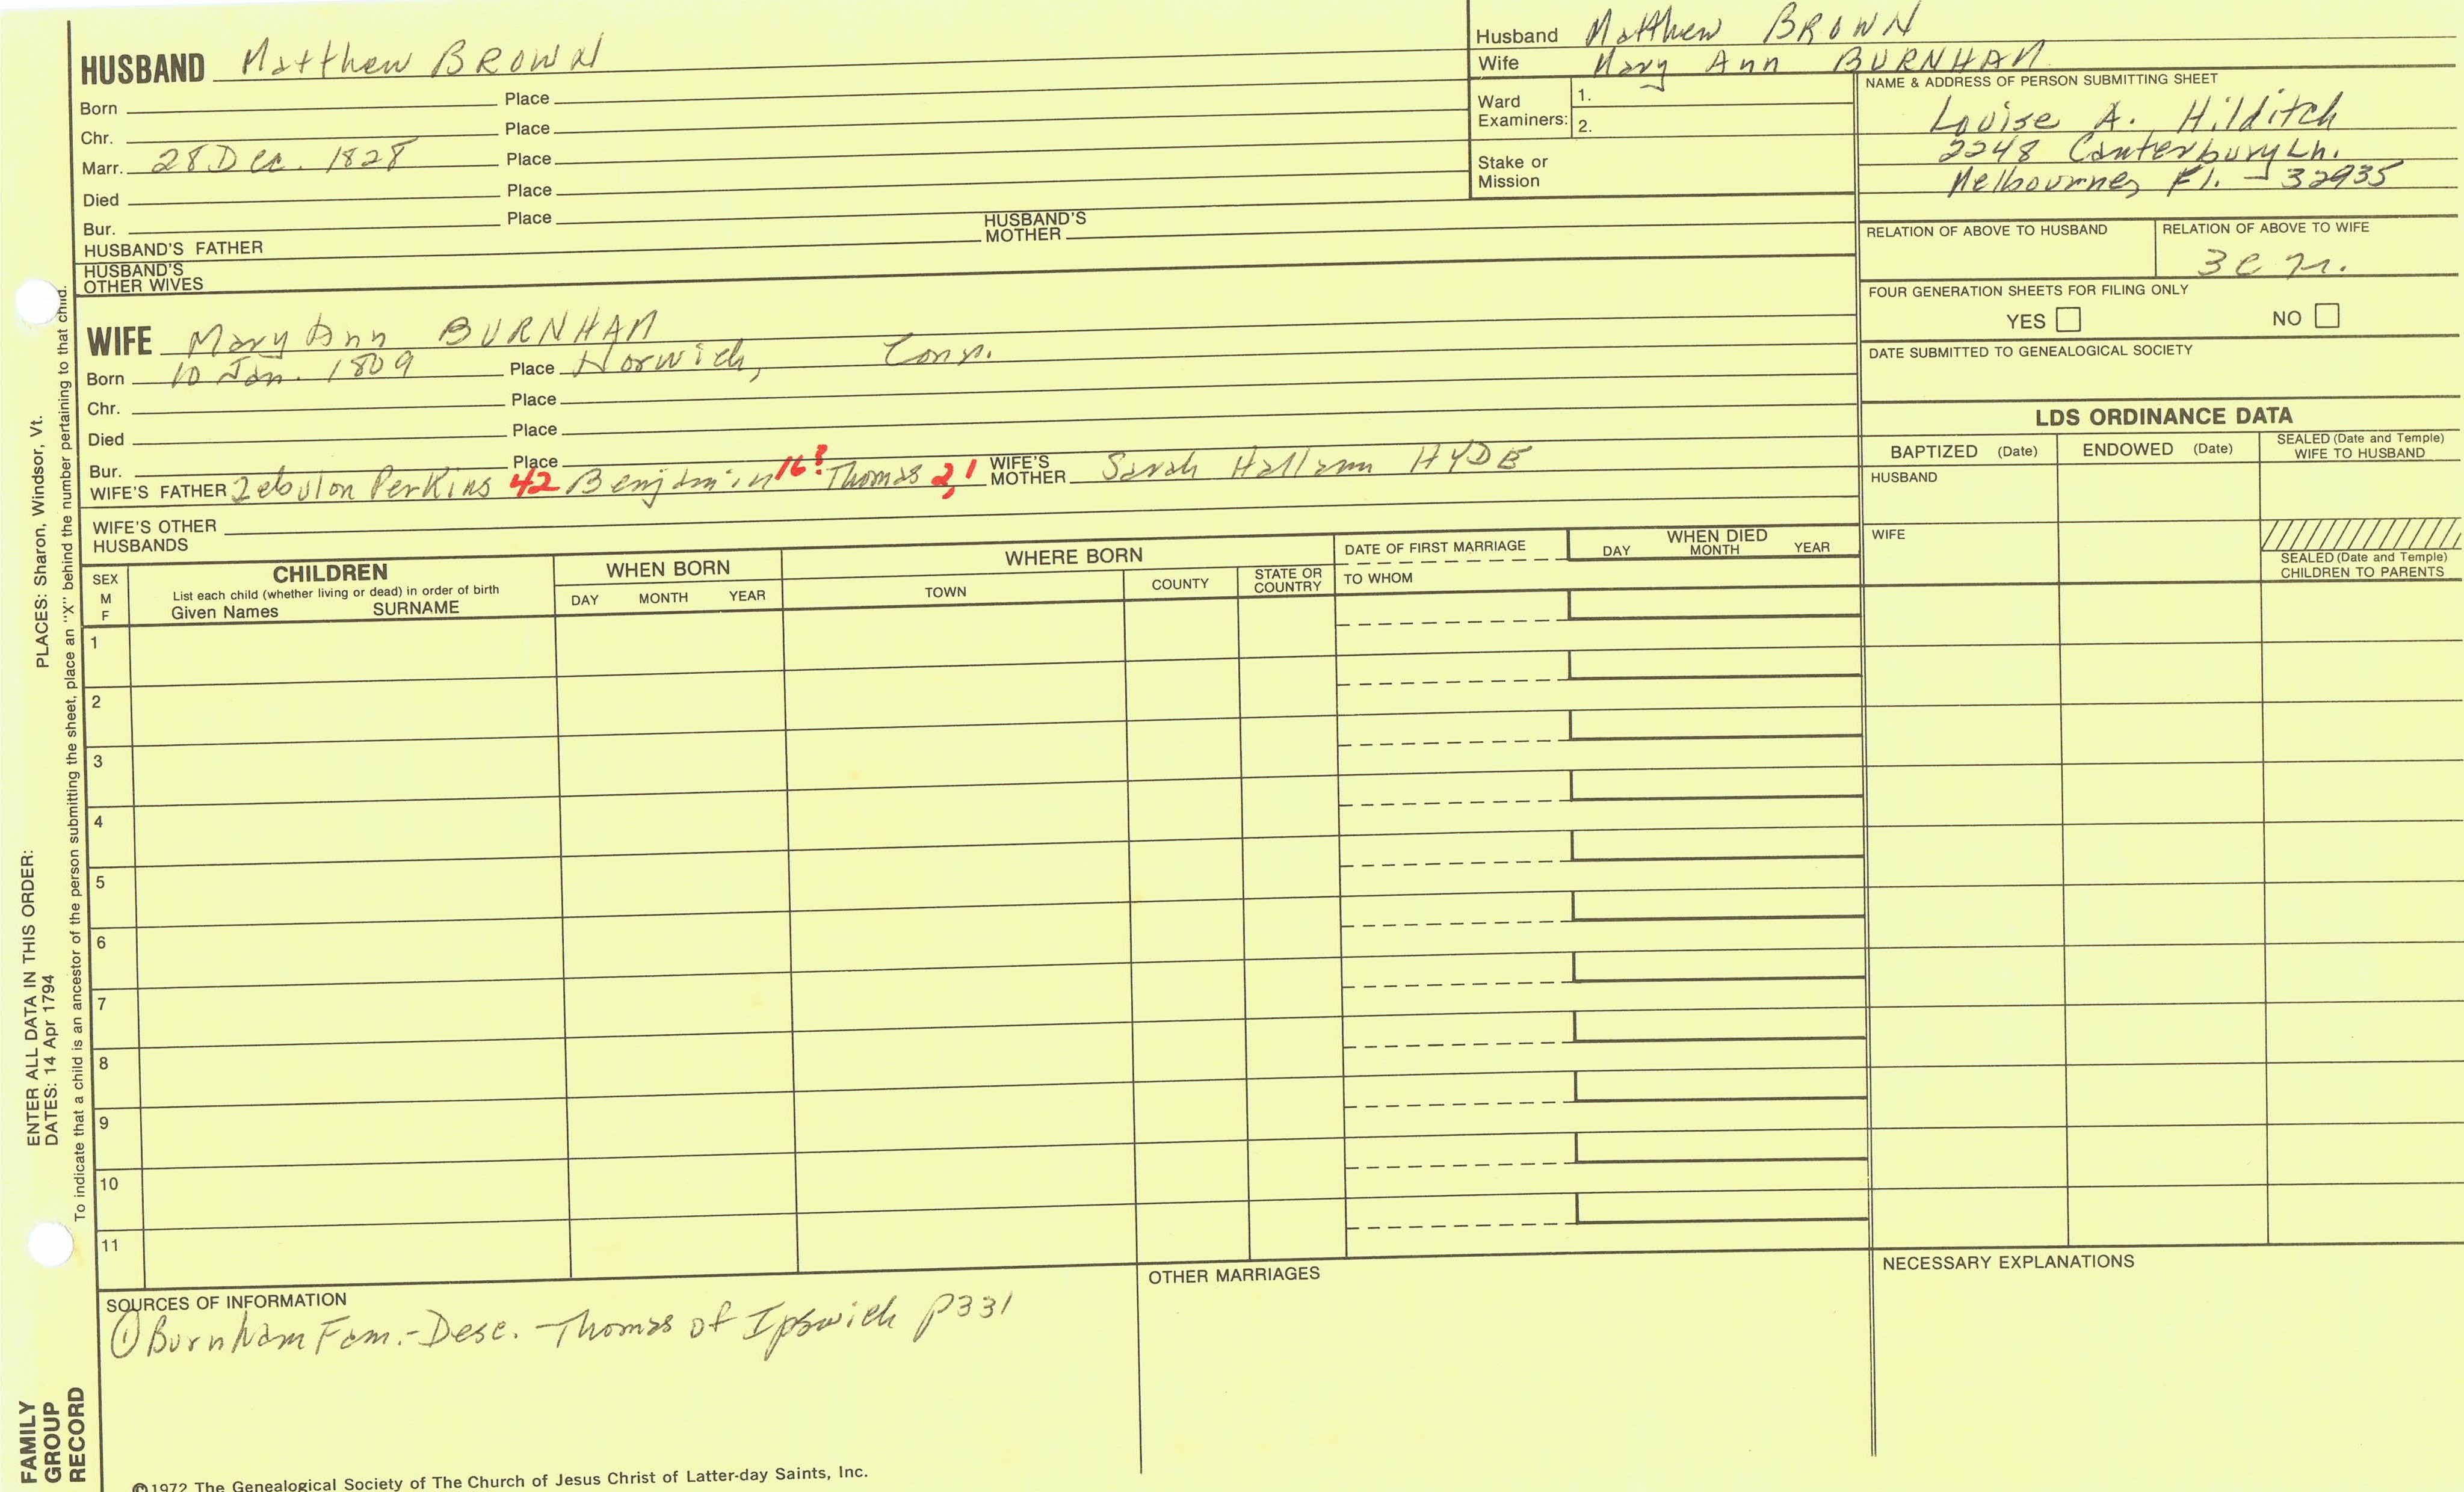 HUSBAND Matthew BROWN
Born Place
Chr. Place
Marr. 28 Dec. 1828 Place
Died Place
Bur. Place
HUSBAND'S FATHER HUSBAND'S MOTHER
HUSBAND'S OTHER WIVES
Husband Matthew BROWN
Wife Mary Ann BURNHAM
Ward Examiners: 1.
2.
Stake or Mission
NAME & ADDRESS OF PERSON SUBMITTING SHEET
Louise A. Hilditch
2248 Canterbury Ln.
Melbourne, Fl. - 32935
RELATION OF ABOVE TO HUSBAND
RELATION OF ABOVE TO WIFE
FOUR GENERATION SHEETS FOR FILING ONLY
YES NO
DATE SUBMITTED TO GENEALOGICAL SOCIETY
WIFE Mary Ann BURNHAM
Born 10 Jan. 1809 Place Norwich, Conn.
Chr. Place
Died Place
Bur. Place
WIFE'S FATHER Zebulon Perkins 42 Benjamin 16? Thomas 2,1 WIFE'S MOTHER Sarah Hallam HYDE
WIFE'S OTHER HUSBANDS
LDS ORDINANCE DATA
BAPTIZED (Date) ENDOWED (Date) SEALED (Date and Temple) WIFE TO HUSBAND
HUSBAND
WIFE
SEALED (Date and Temple) CHILDREN TO PARENTS
SEX M F
CHILDREN
List each child (whether living or dead) in order of birth
Given Names SURNAME
WHEN BORN
DAY MONTH YEAR
WHERE BORN
TOWN COUNTY STATE OR COUNTRY
DATE OF FIRST MARRIAGE
TO WHOM
WHEN DIED
DAY MONTH YEAR
1
2
3
4
5
6
7
8
9
10
11
SOURCES OF INFORMATION
① Burnham Fam.- Desc. - Thomas of Ipswich p331
OTHER MARRIAGES
NECESSARY EXPLANATIONS
©1972 The Genealogical Society of The Church of Jesus Christ of Latter-day Saints, Inc.
FAMILY GROUP RECORD
ENTER ALL DATA IN THIS ORDER:
DATES: 14 Apr 1794
PLACES: Sharon, Windsor, Vt.
To indicate that a child is an ancestor of the person submitting the sheet, place an "X" behind the number pertaining to that child.